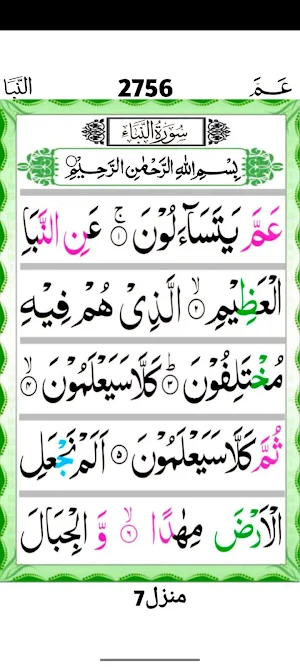 عَمَّ 2756 النَّبَا
سُوْرَةُ النَّبَاءِ
بِسْمِ اللّٰهِ الرَّحْمٰنِ الرَّحِيْمِ
عَمَّ يَتَسَآءَلُوْنَ ۚ۝۱ عَنِ النَّبَاِ
الْعَظِيْمِ ۙ۝۲ الَّذِىْ هُمْ فِيْهِ
مُخْتَلِفُوْنَ ؕ۝۳ كَلَّا سَيَعْلَمُوْنَ ۙ۝۴
ثُمَّ كَلَّا سَيَعْلَمُوْنَ ۝۵ اَلَمْ نَجْعَلِ
الْاَرْضَ مِهٰدًا ۙ۝۶ وَّ الْجِبَالَ
منزل7